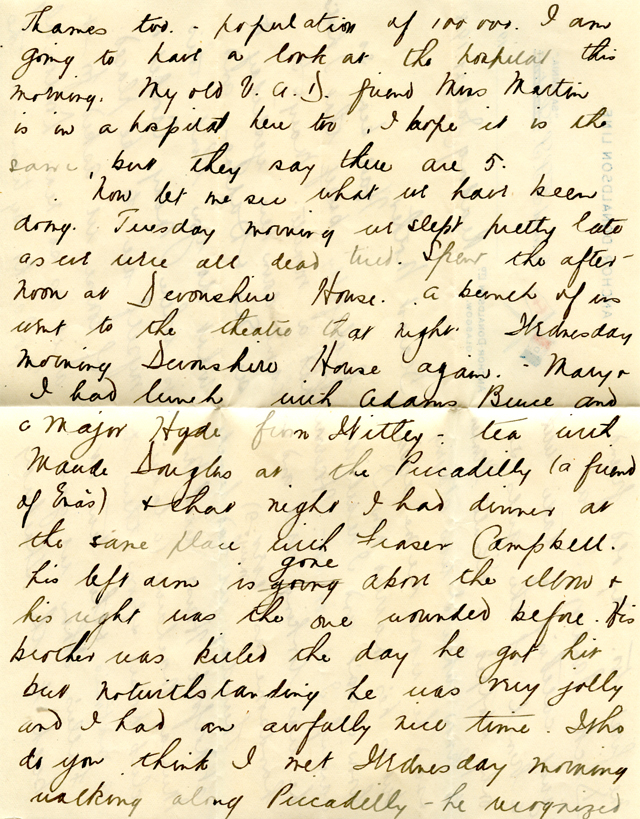 Thames too. - population of 100 000. I am
going to have a look at the hospital this
morning. My old V.A.D. friend Miss Martin
is in a hospital here too, I hope it is the
same, but they say there are 5.
Now let me see what we have been
doing. Tuesday morning we slept pretty late
as we were all dead tired. Spent the after-
noon at Devonshire House. a bunch of us
went to the theatre that night. Wednesday
morning Devonshire House again. - Mary +
I had lunch with Adams Bruce and
a Major Hyde from Witley - tea with
Maude Douglas at the Piccadilly (a friend
of Ena's) + that night I had dinner at
the same place with Fraser Campbell.
gone
his left arm is going above the elbow +
his right was the one wounded before. His
brother was killed the day he got hit
but notwithstanding he was very jolly
and I had an awfully nice time. Who
do you think I met Wednesday morning
walking along Piccadilly - he recognized